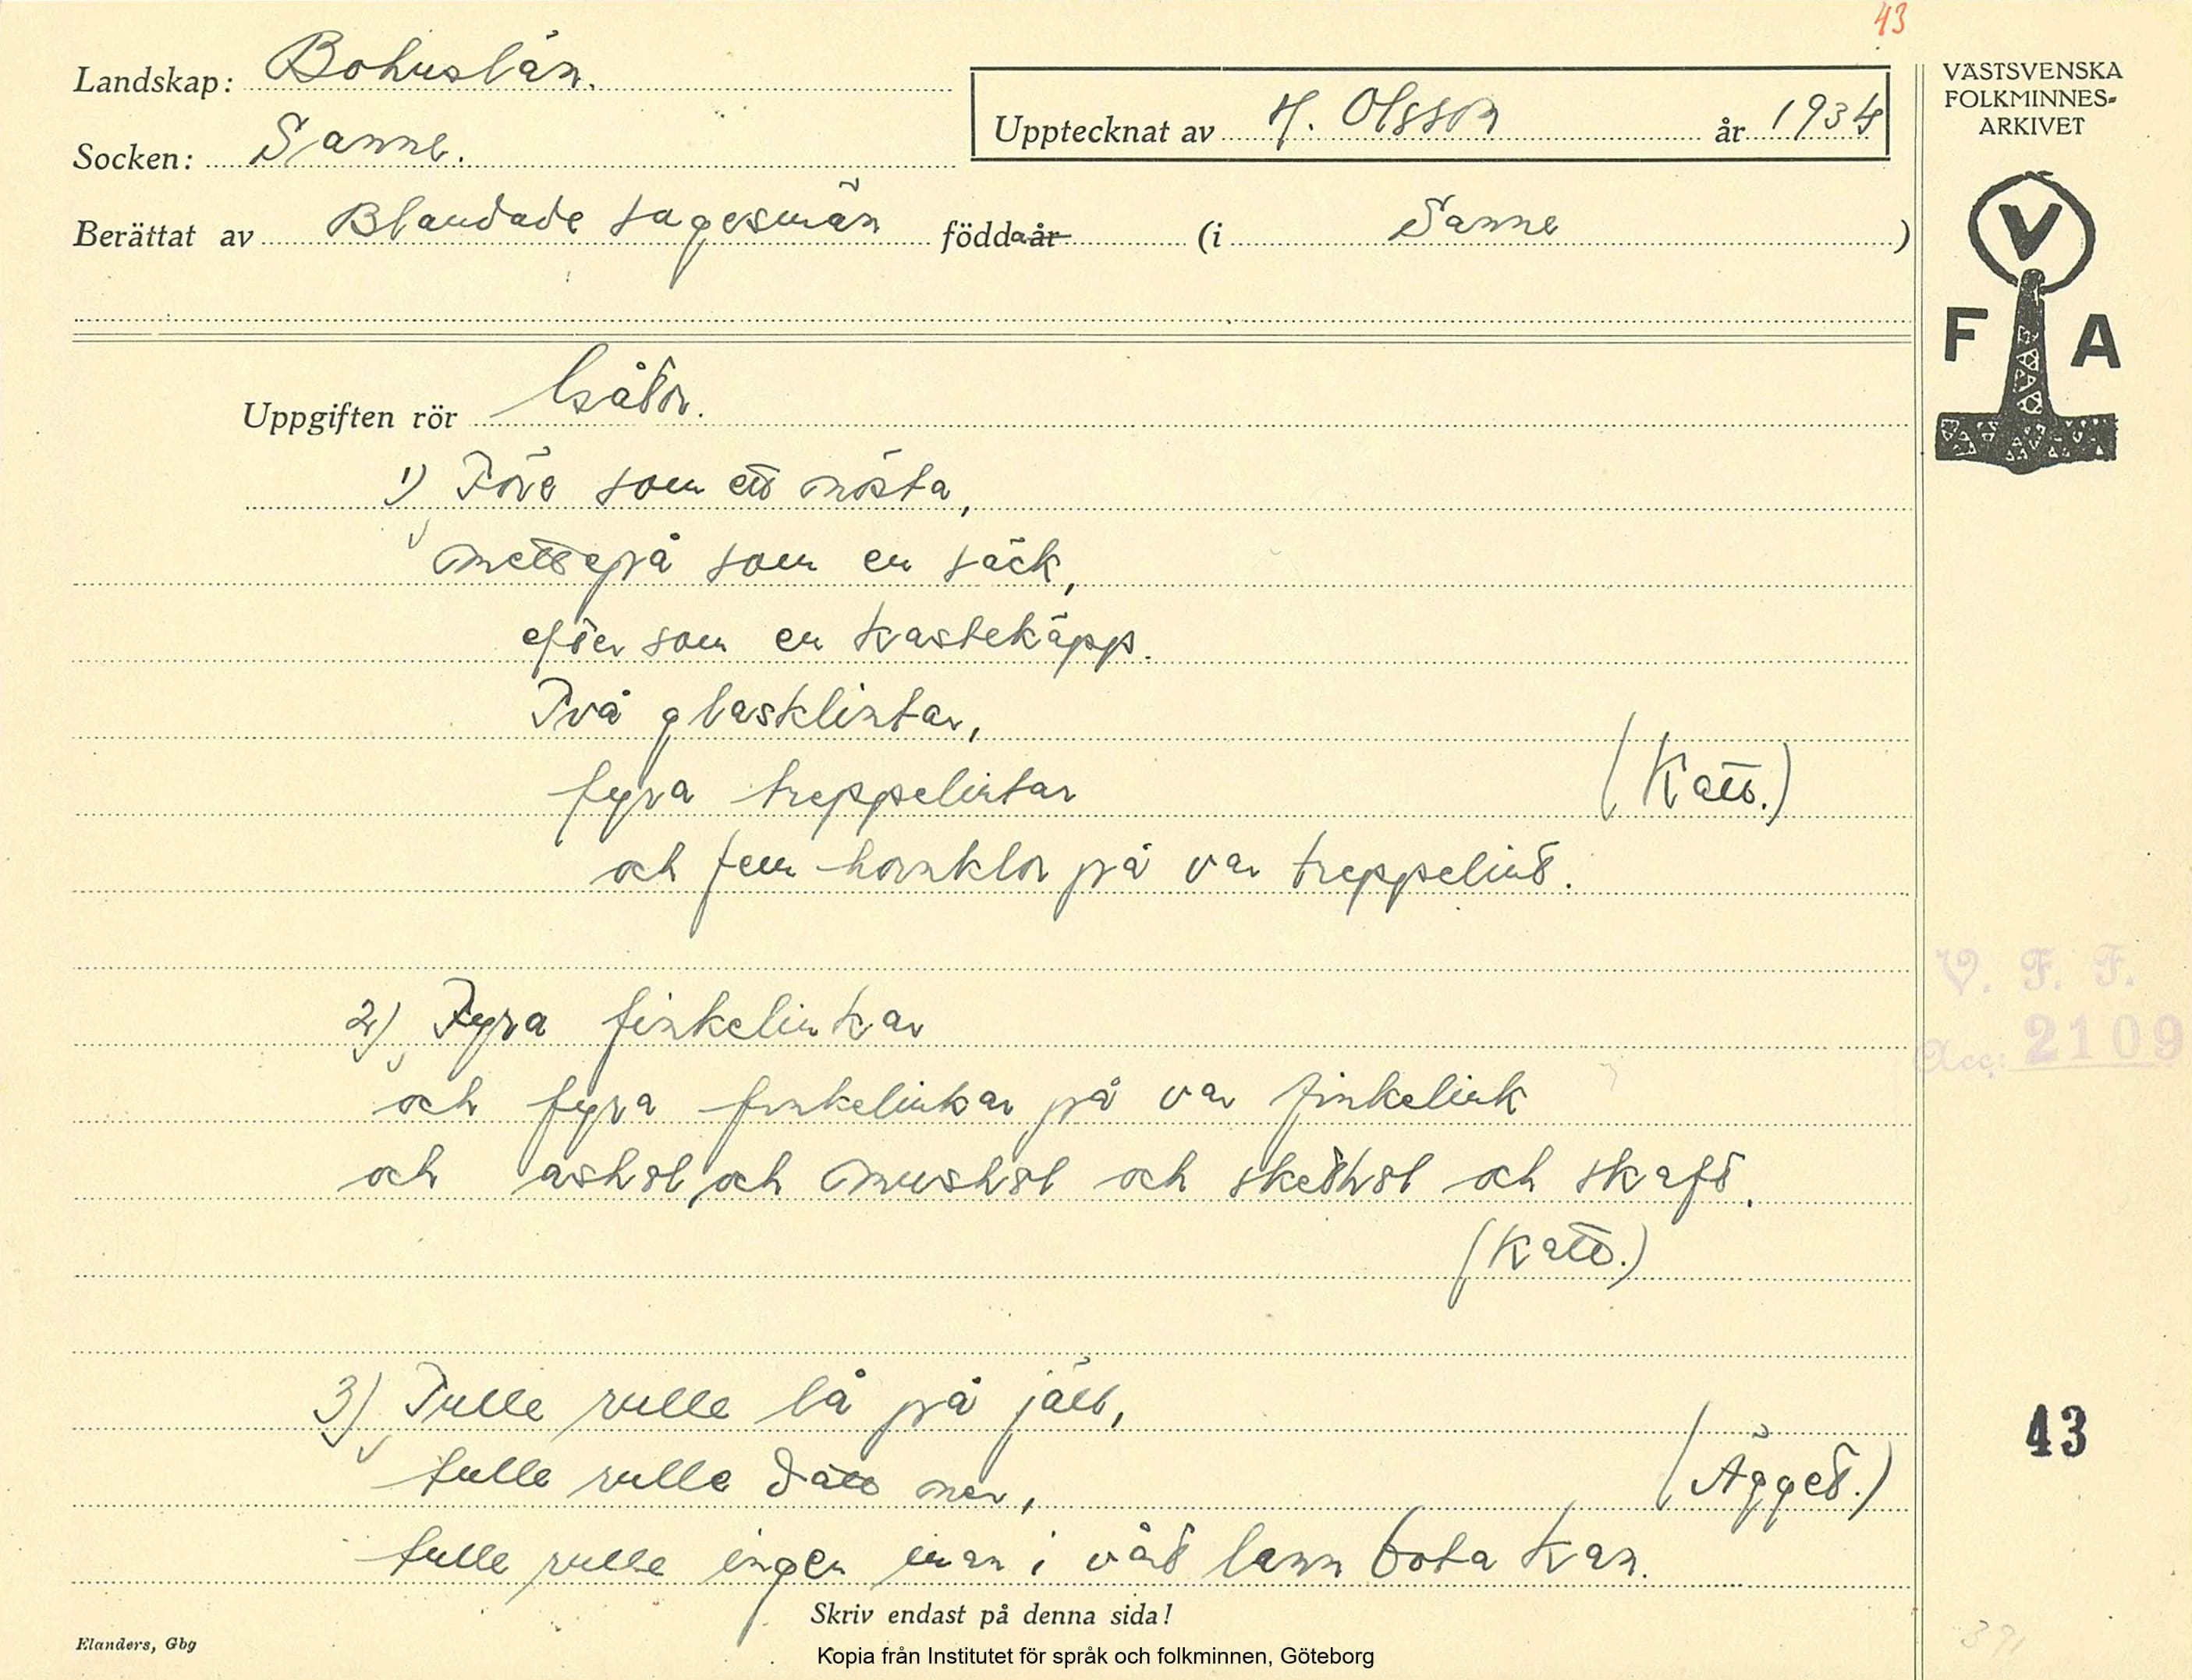 43
Landskap: Bohuslän.
Socken: Sanne.
Upptecknat av H. Olsson år 1934
Berättat av Blandade sagesmän födda år (i Sanne)
VÄSTSVENSKA
FOLKMINNES-
ARKIVET
V
F A
Uppgiften rör Gåtor.
1) Före som ett nösta,
mettepå som en säck,
efter som en kastekäpp.
Två glasklintar,
fyra treppelintar
(Katt.)
och fem hornklor på var treppelint.
2) Fyra finkelinkar
och fyra finkelinkar på var finkelink
och ashol och mushol och skethol och skaft.
(Katt.)
V. F. F.
Acc: 2109
3) Tulle rulle lå på jäll,
tulle rulle datt ner,
(Ägget.)
tulle rulle ingen man i vårt lann bota kan.
43
Skriv endast på denna sida!
Elanders, Gbg
Kopia från Institutet för språk och folkminnen, Göteborg
391